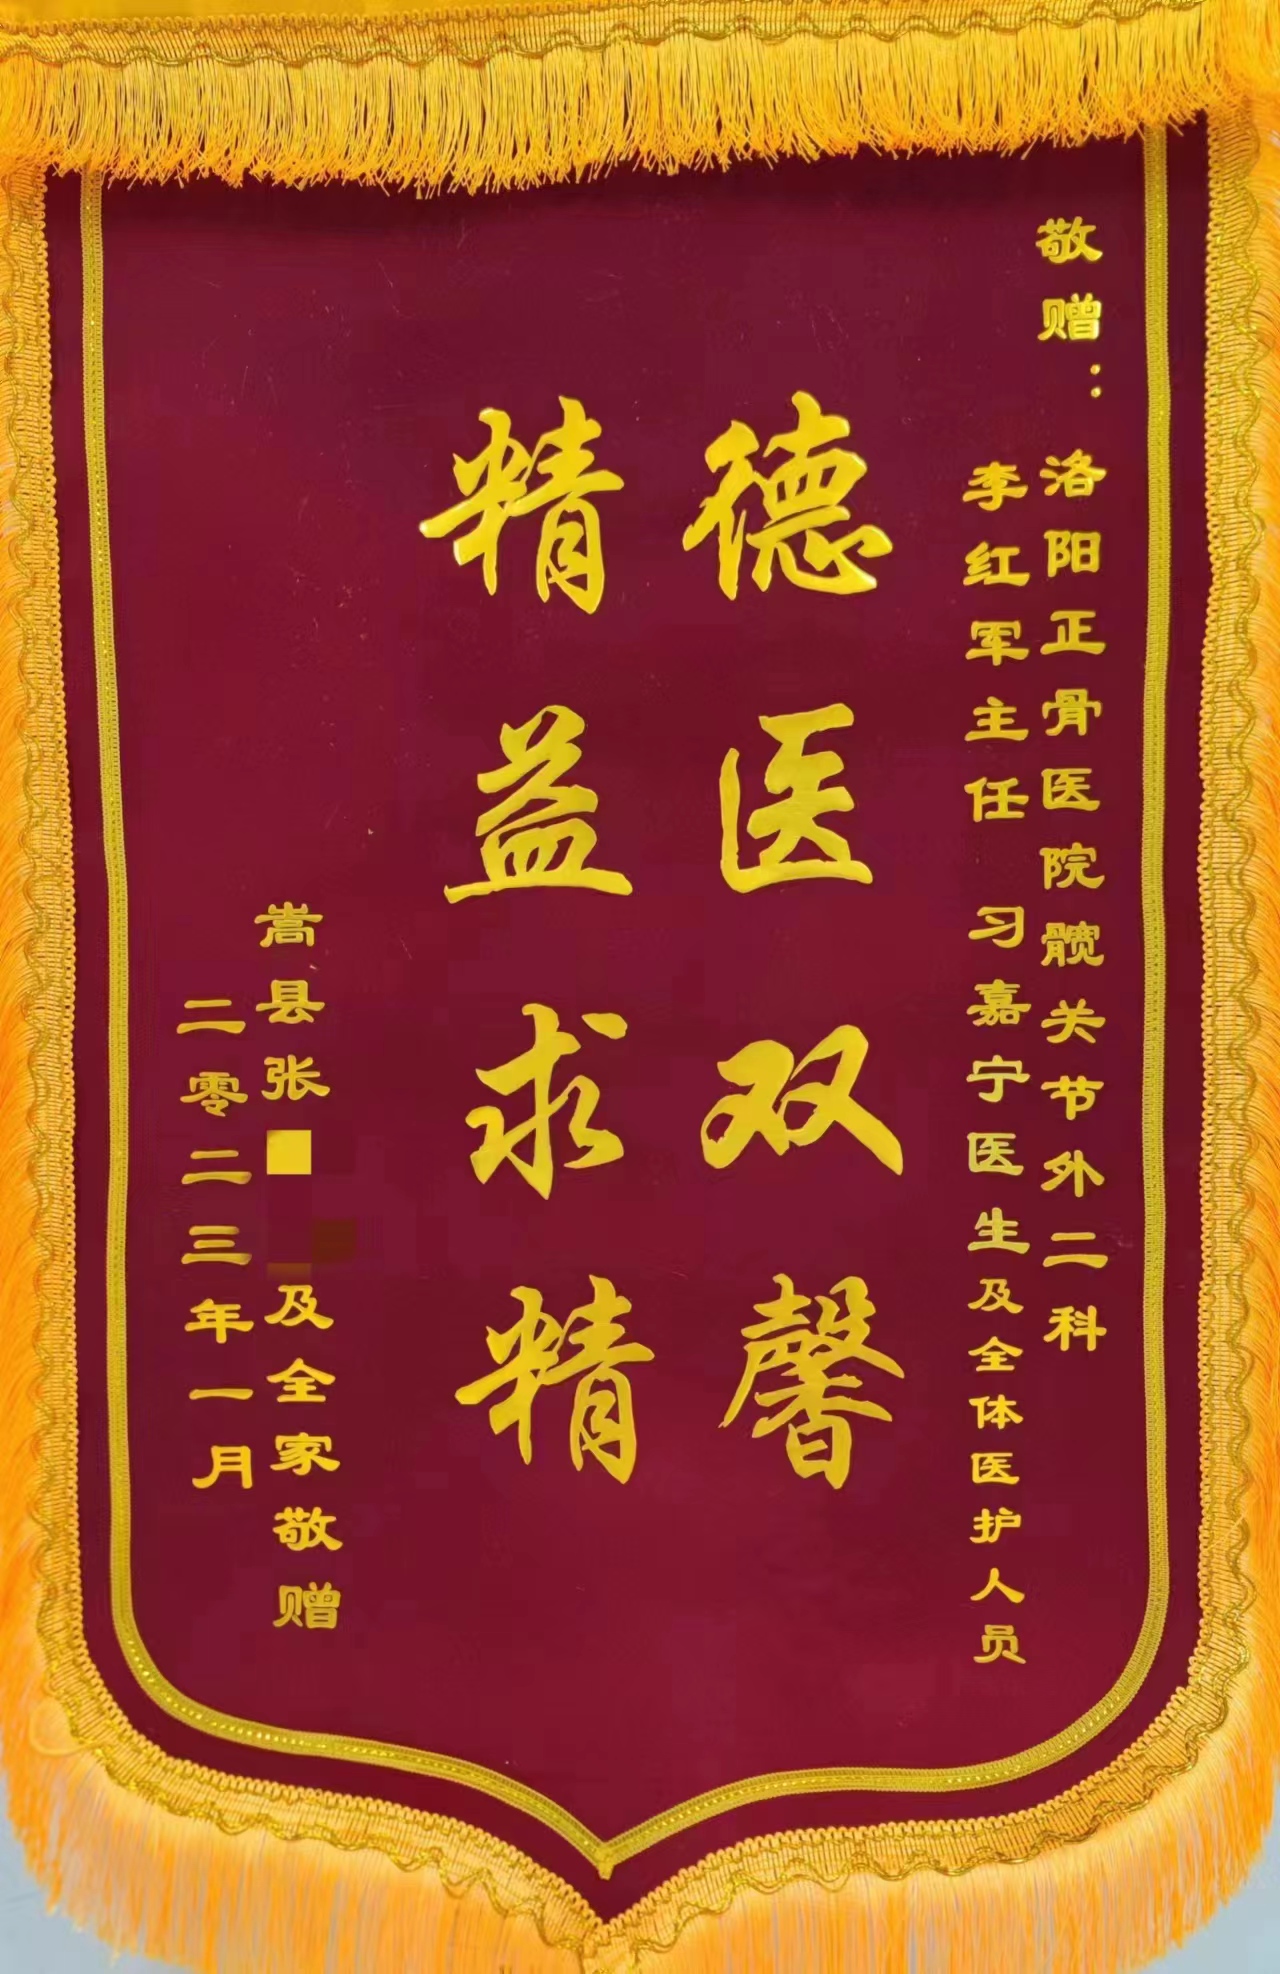 敬赠：洛阳正骨医院髋关节外二科
李红军主任 习嘉宁医生及全体医护人员
德医双馨
精益求精
嵩县张 及全家敬赠
二零二三年一月